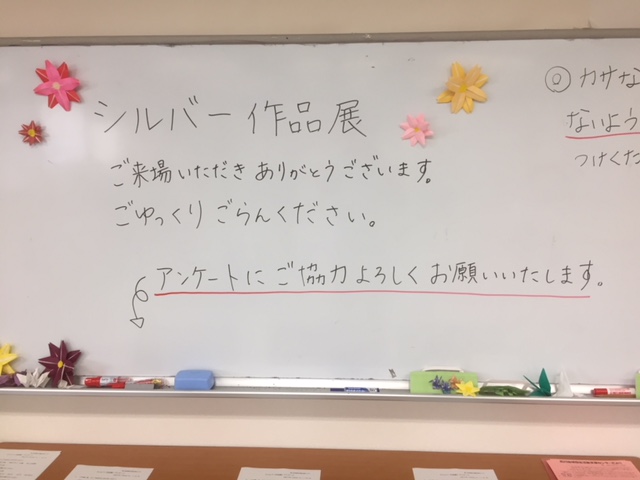 シルバー作品展
ご来場いただき ありがとうございます。
ごゆっくり ごらんください。
アンケートに ご協力よろしく お願いいたします。
◎ カサな
ないよう
つけくだ